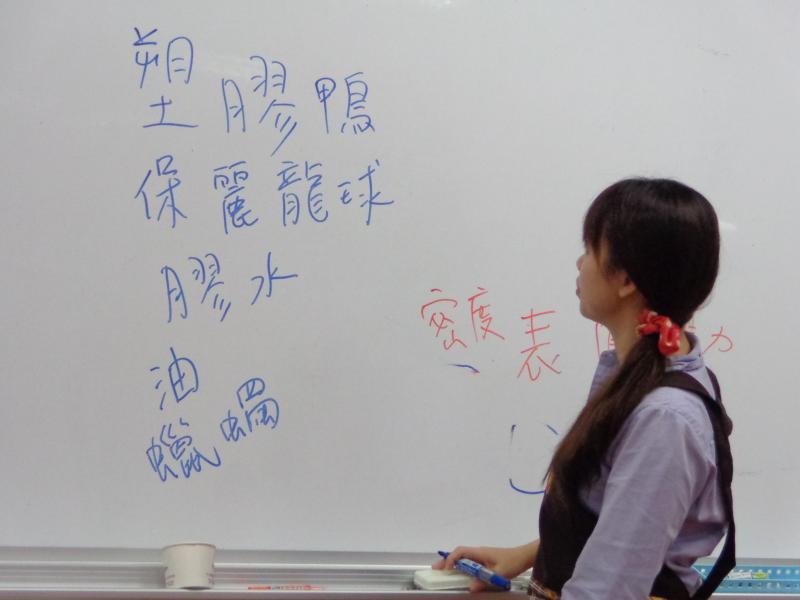 塑膠鴨
保麗龍球
膠水
油
蠟蝸
密度表 力